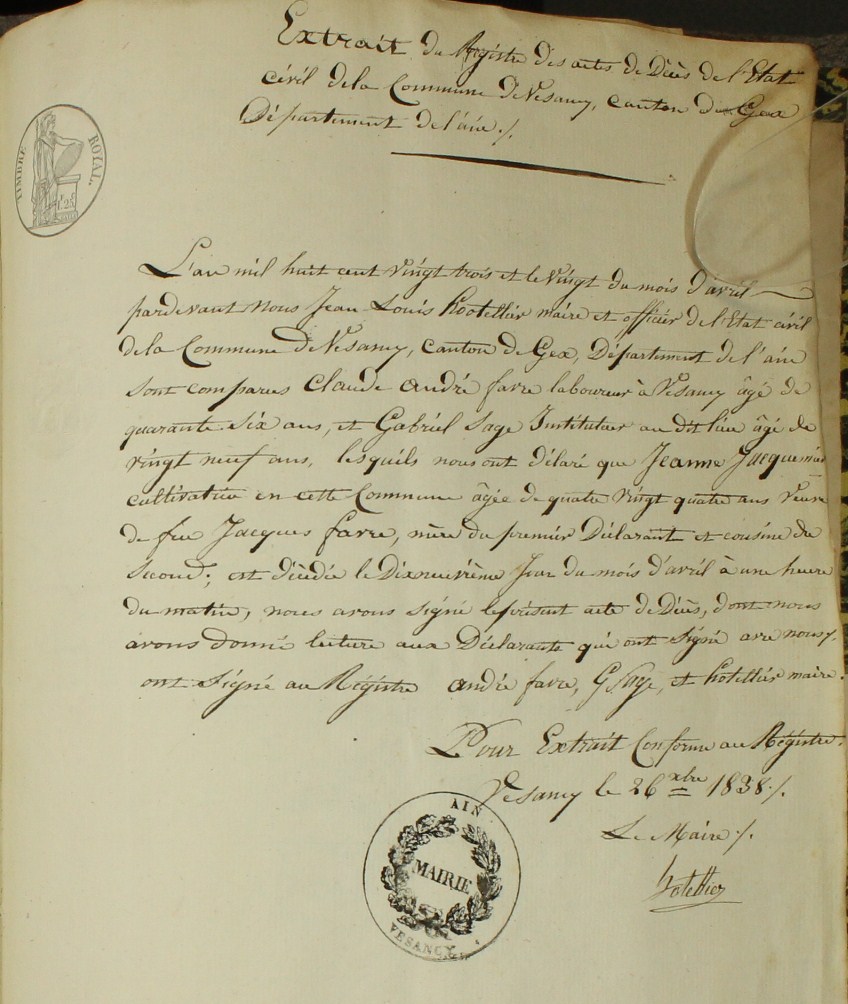 Extrait du Registre des actes de Décès de l'Etat
civil de la Commune de Vesancy, canton de Gex
Département de l'ain ./.
TIMBRE ROYAL.
L'an mil huit cent vingt trois et le vingt du mois d'avril
pardevant nous Jean Louis hotellier maire et officier de l'Etat civil
de la Commune de Vesancy, canton de Gex, Département de l'ain
sont comparus Claude andré favre laboureur à Vesancy âgé de
quarante six ans, et Gabriel Sage Instituteur au dit lieu âgé de
vingt neuf ans, lesquels nous ont déclaré que Jeanne Jacquemier
cultivatrice en cette Commune âgée de quatre vingt quatre ans veuve
de feu Jacques favre, mère du premier Déclarant et cousine du
second; est décédée le Dixneuvième Jour du mois d'avril à une heure
du matin, nous avons signé le présent acte de Décès, dont nous
avons donné lecture aux Déclarants qui ont signé avec nous ./.
ont signé au Régistre andré favre, G Sage, et hotellier maire.
Pour Extrait Conforme au Régistre.
Vesancy le 26 xbre 1838 ./.
Le Maire ./.
hotellier
AIN
MAIRIE
VESANCY